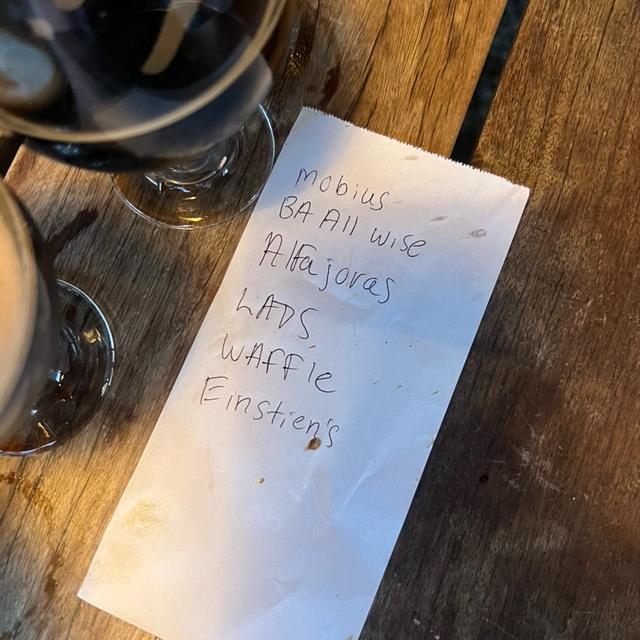 mobius
BA All wise
Alfajoras
LADS
WAFFle
Einstien's